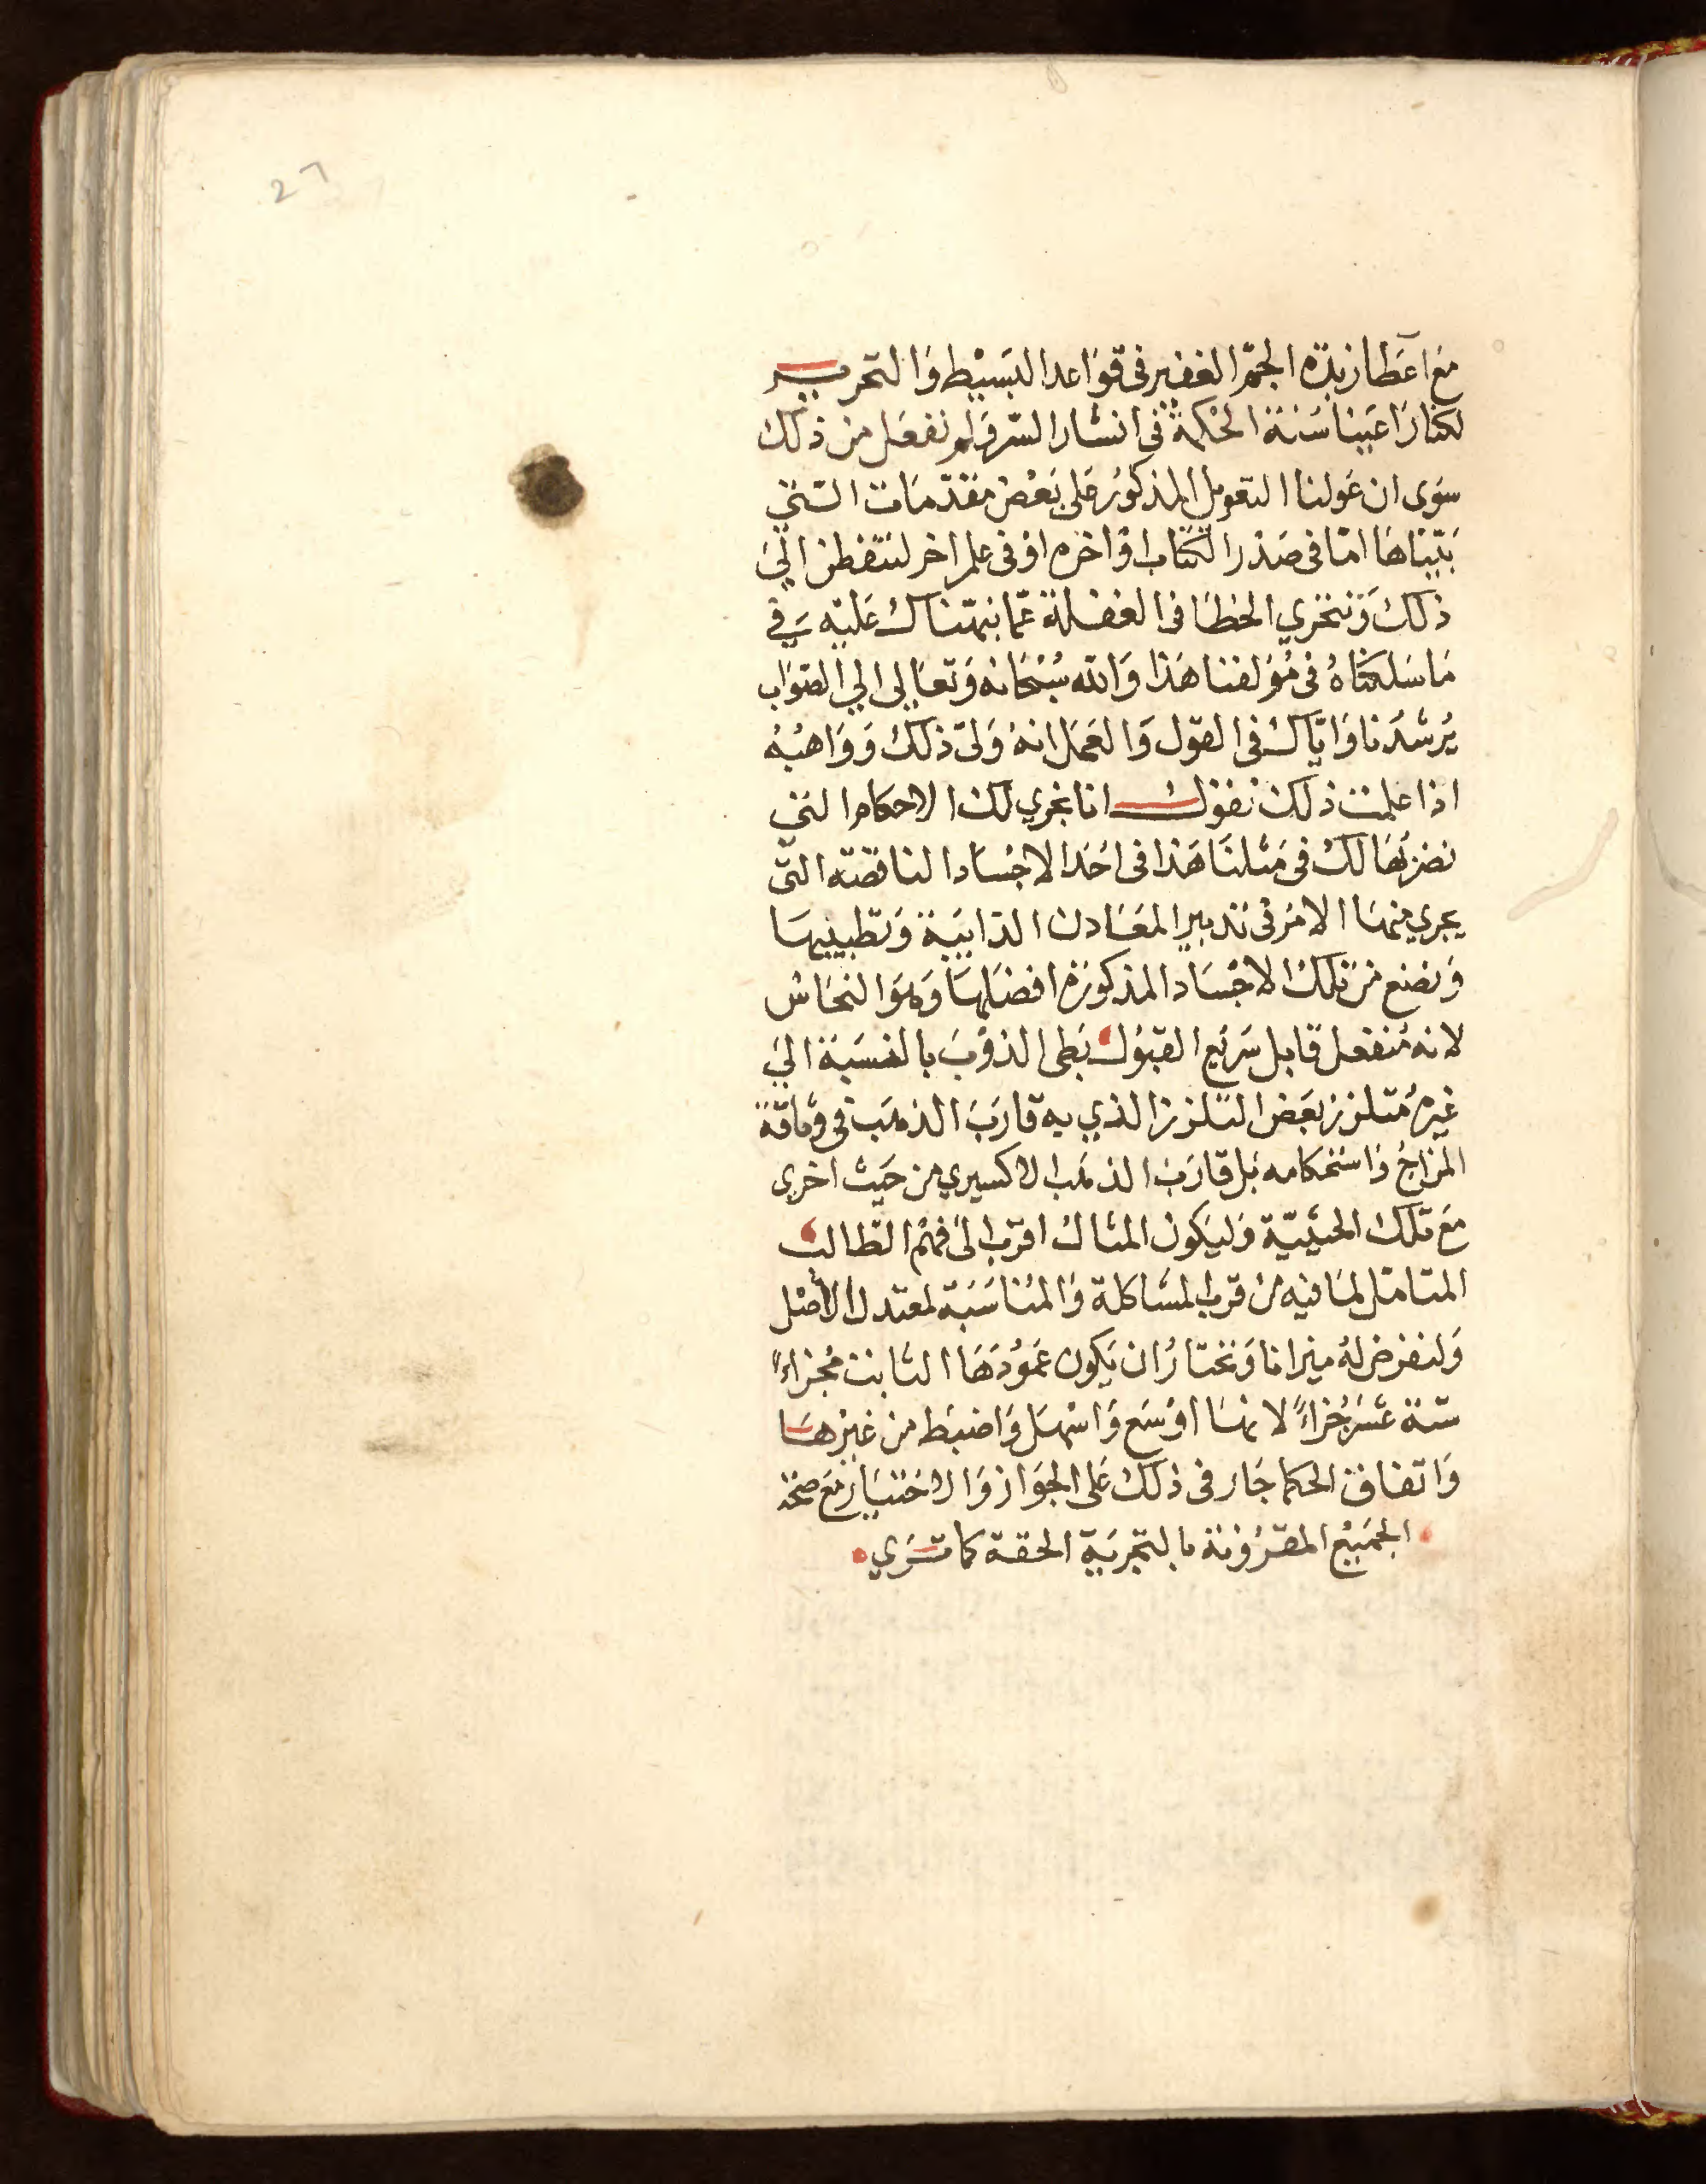 27
مع اعطا زبدة الجم الغفير في قواعد البسيط والتحرير
لكنا راعينا سنة الحكمة في انشار السر ولم نفعل من ذلك
سوى ان عولنا التعويل المذكور على بعض مقدمات التي
بتيناها اما في صدر الكتاب او اخره او في علم اخر لتتفطن الي
ذلك وتتحري الخطا في الغفلة عما نبهناك عليه في
ما سلكناه في مؤلفنا هذا والله سبحانه وتعالى الي الصواب
يرشدنا واياك في القول والعمل انه ولي ذلك وواهبه
اذا علمت ذلك نقول انا نجري لك الاحكام التي
نضربها لك في مثلنا هذا في احد الاجساد الناقصه التي
يجري منها الامر في تدبير المعادن الذايبة وتطبيبها
ونضع من تلك الاجساد المذكورة افضلها وهو النحاس
لانه منفعل قابل سريع القبول بطى الذوب بالنسبة الي
غيره متلزز بعض التلزز الذي به قارب الذهب في وثاقة
المزاج واستحكامه بل قارب الذهب الاكسيري من حيث اخرى
مع تلك الحيثية وليكون المثال اقرب الى فهم الطالب
المتامل لما فيه من قرب المشاكلة والمناسبة لمعتدل الاصل
ولنفرض له ميزانا ونختار ان يكون عمودها الثابت مجزاءً
ستة عشر جزاءً لانها اوسع واسهل واضبط من غيرها
واتفاق الحكما جار في ذلك على الجواز والاختيار مع صحة
الجميع المقرونة بالتجربة الحقة كما تري